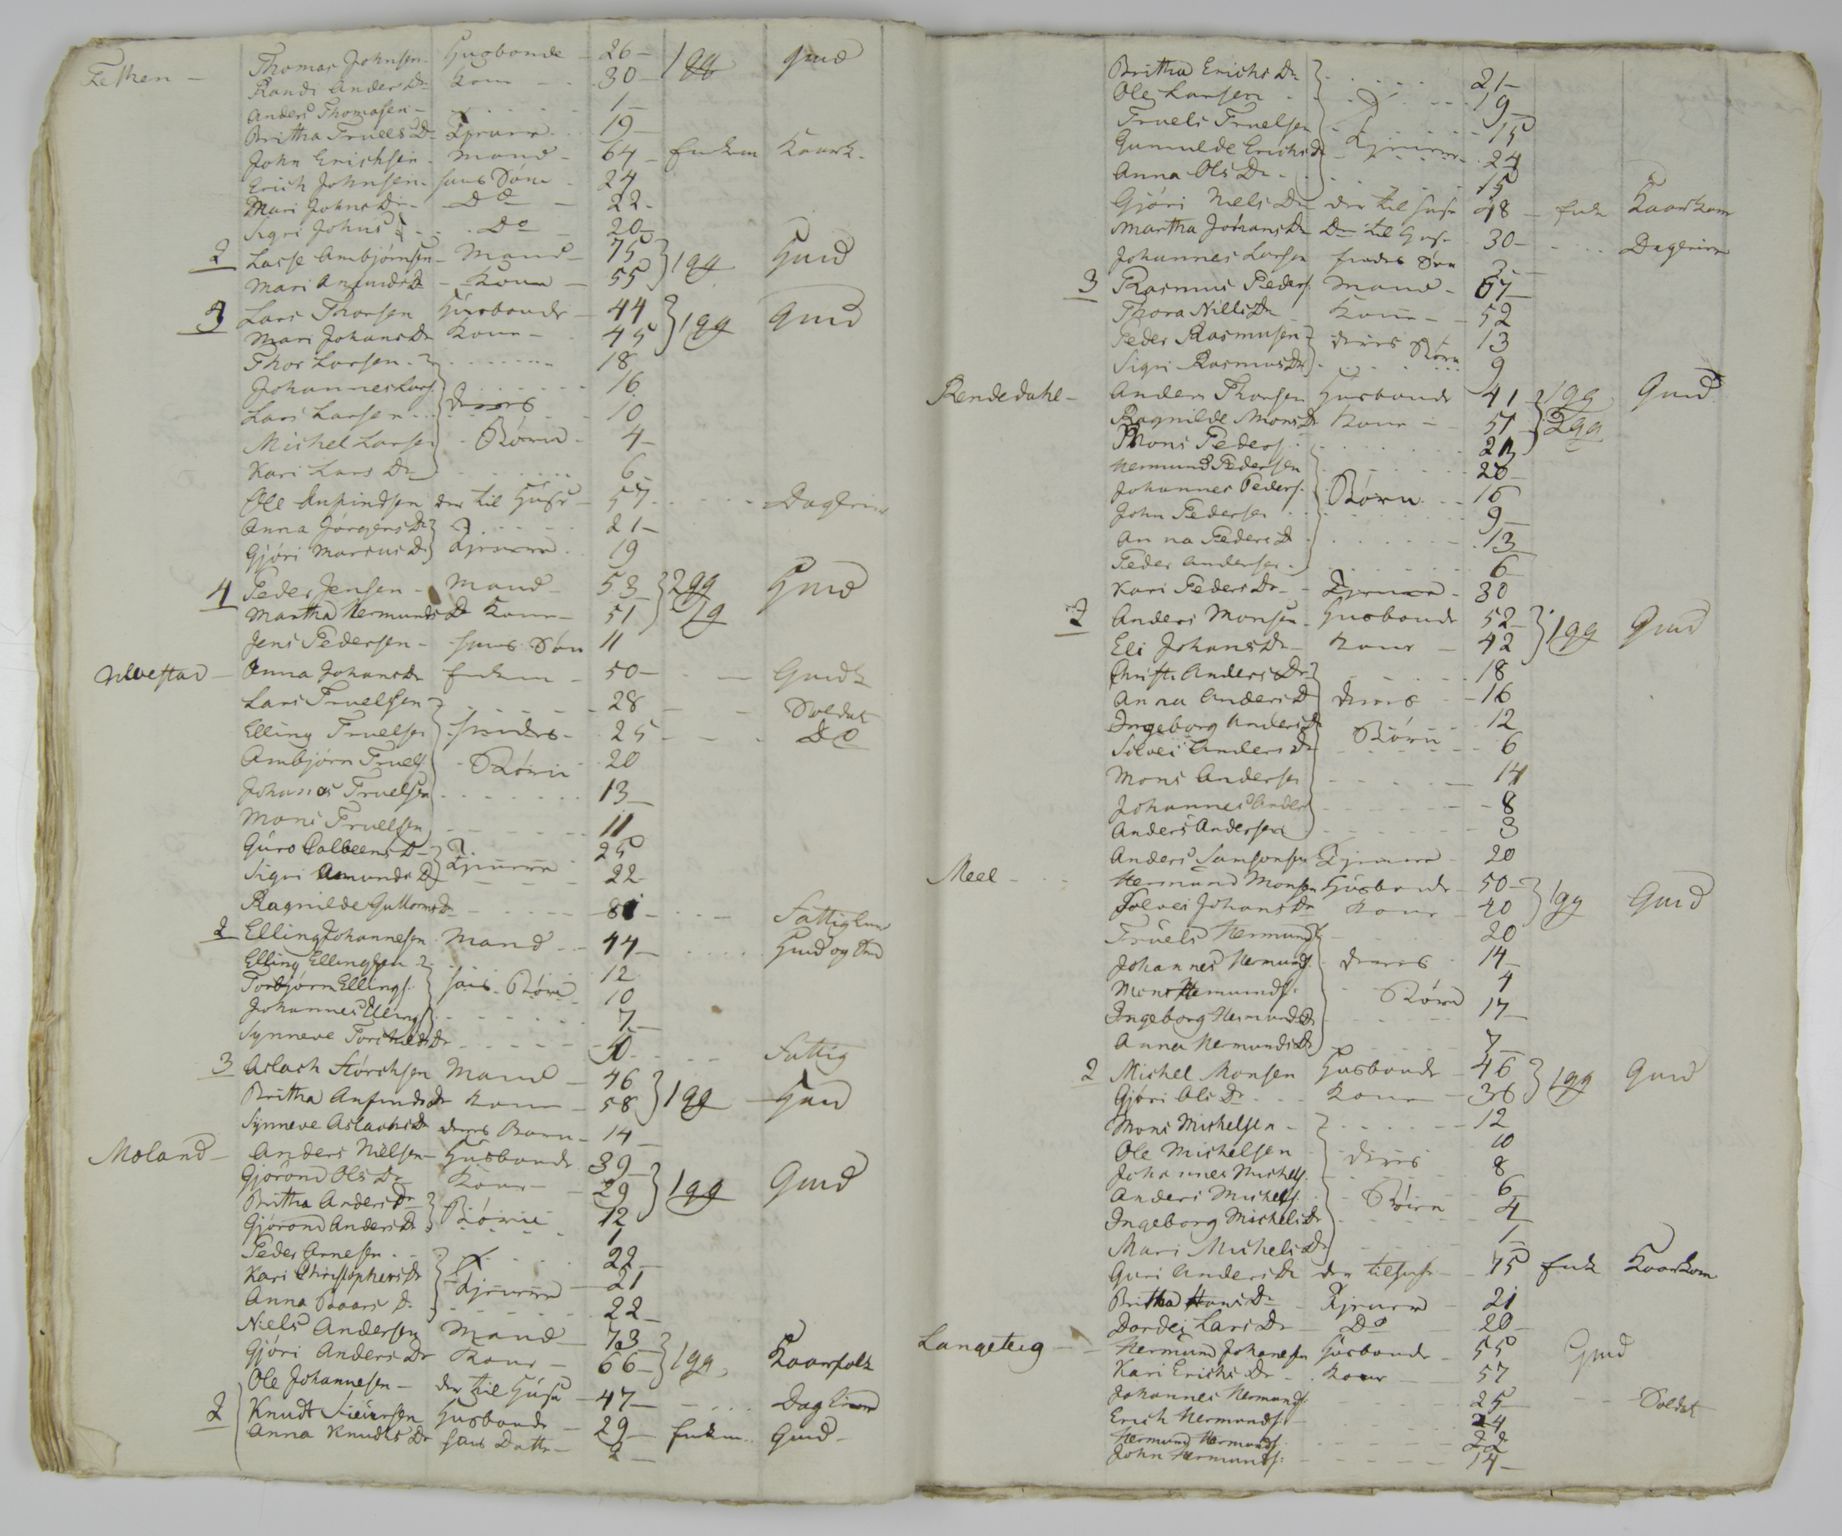 Fethen - Thomas Johnsen Husbonde - 26 - 1 gg Gmd
Randi Anders Dr Kone - - 30 -
Anders Thomasen - . . . . 1 -
Britha Truels Dr Tjenere 19 -
John Erichsen - Mand - 64 - Enkem Kaark.
Erich Johnsen - hans Søn - 24
Mari Johns Dr - Do - 22 -
Sigri Johns . . Do - 20 -
2 Lasse Ambjørnsen - Mand - 75 1 gg Gmd
Mari Amunds Dr - Kone - 55
3 Lars Thorsen Husbonde - 44 1 gg Gmd
Mari Johans Dr Kone - 45
Thor Larsen - 18
Johannes Lars 16
Lars Larsen deres 10
Michel Larsen Børn - 4 -
Kari Lars Dr 6 -
Ole der til Huse - 57 Daglein
Anna Jørgens Dr 21 -
Gjøri Marcus Dr Tjenere 19
4 Peder Jensen - Mand - 53 2 gg Gmd
Martha Hermunds Dr Kone - 51 1 g
Jens Pedersen - hans Søn 11
Anna Johans Dr Enkem - 50 - - Gmdk
Lars Truelsen 28 - - Soldat
Elling Truelsen hendes - 25 - - . Do
Ambjørn Truels - Børn 20
Johanes Truelsen 13 -
Mons Truelsen 11
Guro Colbeens Dr 25
Sigri Amunds Dr Tjenere 22
Ragnilde Guttorms Dr 81 - Fattiglem
2 Elling Johannesen Mand - - 44 - Gmd og
Elling Ellingsen 12
Torbjørn Ellings. hans Børn 10
Johannes Ellings 7 -
Synneve Dr 50 - Fattig
3 Aslach Størchsen Mand - 46 1 gg Gmd
Britha Anfinds Dr Kone - 58
Synneve Aslachs Dr deres Barn - 14 -
Moland - Anders Nilsen - Husbonde 39 - 1 gg Gmd
Gjørond Ols Dr Kone - 29
Britha Anders Dr Børn 12
Gjørond Anders Dr 7
Peder Arnesen . - 22 -
Kari Christophers Dr Tjenere 21
Anna Baars D. 22 -
Niels Andersen Mand - 73 - 1 gg Kaarfolk
Gjøri Anders Dr Kone - 66 -
Ole Johannesen - der til Huse - 47 - Dagleiner
2 Knudt Siversen Husbonde - 29 - Enkem Gmd -
Anna Knudts Dr hans Datter - 2 -
Britha Erichs Dr 21 -
Ole Larsen 19 -
Truels Truelsen 15
Gunnilde Erichs Dr Tjenere 24
Anna Ols Dr - 15
Gjøri Niels Dr der til huse 48 - Enk Kaarkone
Martha Johans Dr Do til Huse - 30 - Dagleier
Johannes Larsen hendes Søn 3 -
3 Rasmus Peders. Mand - 67 -
Thora Nilles Dr Kone - - 52
Peder Rasmusen deres Børn 13
Sigri Rasmus Dr 9
Rendedahl - Anders Thorsen Husbonde 41 1 gg Gmd
Ragnilde Mons Dr Kone - 51 2 gg
Mons Peders. 21
Hermund Pedersen 20 -
Johannes Peders. Børn - 16
John Pedersen 9 -
Anna Peders D 13
Peder Andersen - 6 -
Kari Peders Dr - - Tjener - 30
2 Anders Monsen - Husbonde 52 - 1 gg Gmd
Eli Johans Dr - Kone - 42
Anders Dr 18
Anna Anders D deres 16
Ingeborg Anders Dr 12
Solvei Anders Dr Børn 6
Mons Andersen 14
Johannes Anders 8
Anders Andersen 3
Anders Samsonsen Tjenere - 20
Meel - Hermund Monsen Husbonde - 50 - 1 gg Gmd
Solvei Johans Dr Kone - 40
Truels Hermunds 20
Johannes Hermunds. deres 14 -
Mons Hermunds. Børn 4
Ingeborg Hermunds Dr 17 -
Anna Hermunds Dr 7 -
2 Michel Monsen Husbonde - 46 1 gg Gmd
Gjøri Ols Dr Kone - 36
Mons Michelsen - 12
Ole Michelsen deres 10
Johannes Michels. 8
Anders Michels. Børn 6 -
Ingeborg Michels Dr 4 -
Mari Michels Dr 1 -
Guri Anders Dr der til huse - 75 Enk Kaarkone
Britha Hans Dr - Tjenere - 21
Dordei Lars Dr - Do 20 -
Langeteig - Hermund Johansen Husbonde - 55 Gmd
Kari Erichs Dr - Kone 57
Johannes Hermunds. 25 - Soldat
Erich Hermunds. 24
Hermund Hermunds. 22
John Hermunds. 14 -